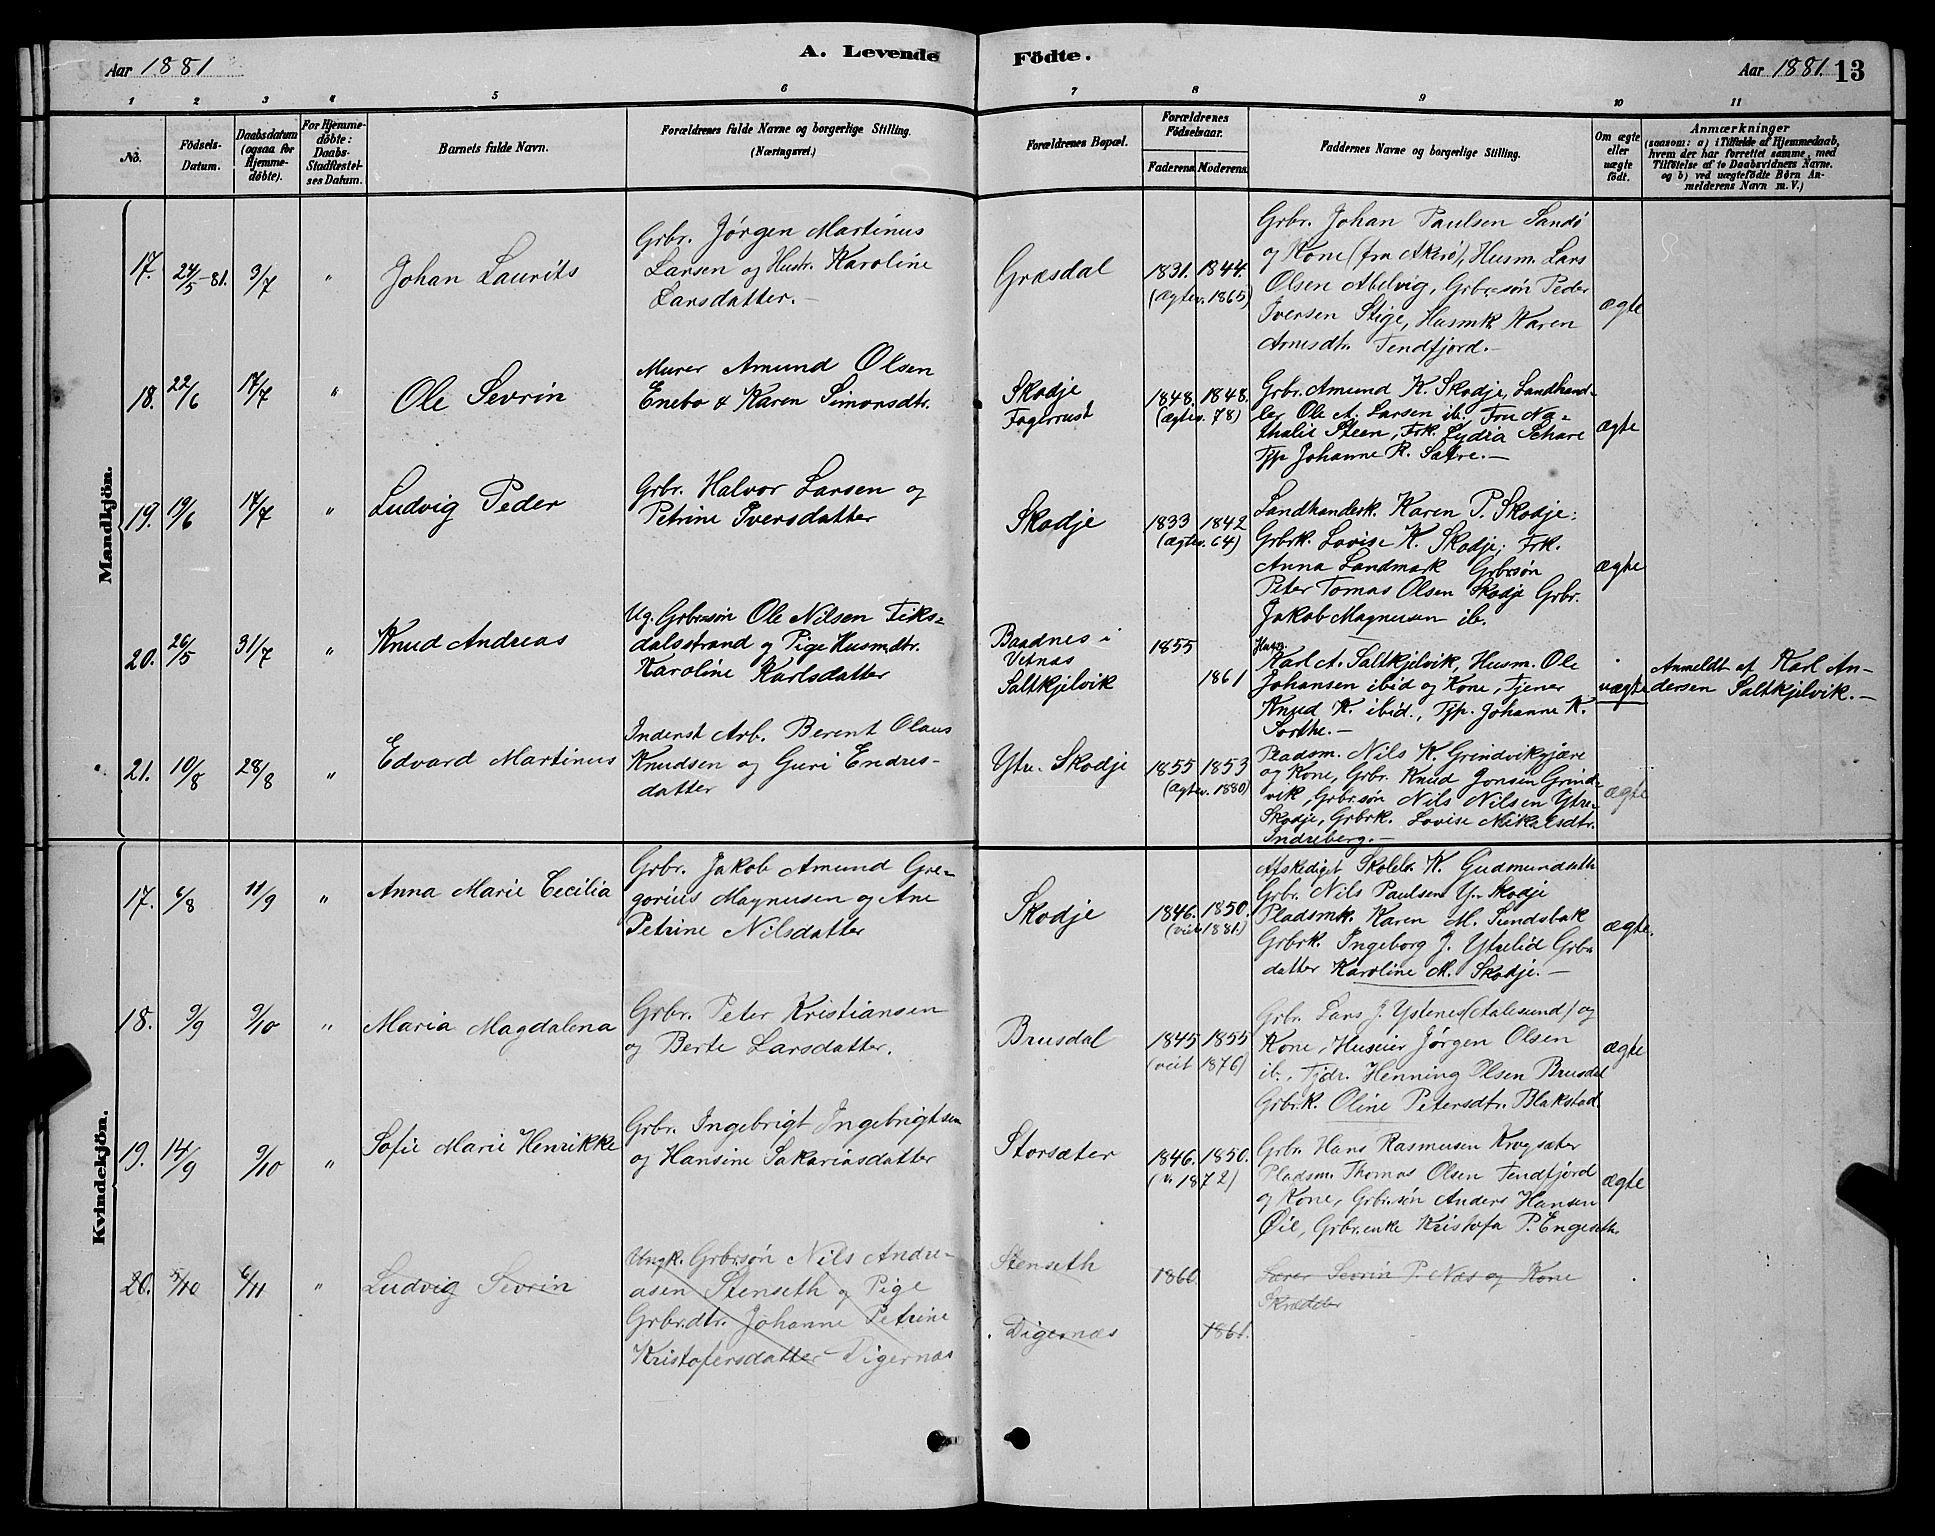 Aar 1881
A. Levende Födte.
Aar 1881. 13
1 2 3 4 5 6 7 8 9 10 11
No.
Födsels-Datum.
Daabsdatum (ogsaa for Hjemme-döbte).
For Hjemme-döbte: Daabs-Stadfæstel-ses Datum.
Barnets fulde Navn.
Forældrenes fulde Navne og borgerlige Stilling.
(Næringsvei.)
Forældrenes Bopæl.
Forældrenes Födselsaar.
Faderens Moderens
Faddernes Navne og borgerlige Stilling.
Om ægte eller uægte født.
Anmærkninger
(saasom: a) i Tilfælde af Hjemmedaab,
hvem der har forrettet samme, med
Tilføielse af to Daabsvidners Navne.
og b) ved uægtefødte Børn An-
melderens Navn m. V.)
Mandkjön.
17. 24/5-81. 3/7 " Johan Laurits
Grbr. Jørgen Martinus
Larsen og Hustr. Karoline
Larsdatter.-
Græsdal
1831. 1844.
(Ægtev. 1865)
Grbr. Johan Paulsen Sandö
og Kone (fra Akerö), Husm. Lars
Olsen Abelvig, Grbrsøn Peder
Iversen Stige, Husmk Karen
Arnesdtr. Tendfjord.-
ægte
18. 22/6 17/7 " Ole Sevrin
Murer Amund Olsen
Enebo & Karen Simonsdtr.
Skodje
Faglerust
1848. 1848.
(Ægtev. 78)
Grbr. Amund K. Skodje, Landhand-
ler Ole A. Larsen ib. Fru Na-
thalie Steen, Frk. Lydia Schare
Tjp Johanne R. Sætre.-
ægte
19. 19/6 17/7 " Ludvig Peder
Grbr. Halvor Larsen og
Petrine Iversdatter
Skodje
1833 1842
(Ægtev. 64)
Landhandlerk. Karen P. Skodje;
Grbrk. Lovise K. Skodje; Frk.
Anna Landmark Grbrsøn
Peter Tomas Olsen Skodje Grbr.
Jakob Magnusen ib.
ægte
20. 26/5 31/7 " Knud Andreas
Ug. Grbrsøn Ole Nilsen Fiks=
dalsstrand og Pige Husmdtr.
Karoline Karlsdatter
Baadnes i
Vetnæs
Saltkjelvik
1855
1861
Husm.
Karl A. Saltkjelvik, Husm. Ole
Johansen ibid og Kone, Tjener
Knud K. ibid., Tjp. Johanne K.
Sorthe.-
uægte
Anmeldt af Karl An-
dersen Saltkjelvik.-
21. 10/8 28/8 " Edvard Martinus
Inderst Arb. Berent Olaus
Knudsen og Guri Endres-
datter
Ytr. Skodje
1855 1853
(Ægtev. 1880)
Pladsm. Nils K. Grindvikgjære
og Kone, Grbr. Knud Jonsen Grind-
vik, Grbrsøn Nils Nilsen Ytre-
Skodje, Grbrk. Lovise Nikolsdtr.
Indreberg.-
ægte
Kvindekjön.
17. 6/8 11/9 " Anna Marie Cecilia
Grbr. Jakob Amund Gre-
gorius Magnusen og Ane
Petrine Nilsdatter
Skodje
1846. 1850.
(viet 1881.)
Afskediget Skolelr. K. Gudmundseth
Grbr. Nils Paulsen Y. Skodje
Pladsmk. Karen M. Sundsbak
Grbrk. Ingeborg J. Ytrelid Grbr
datter Karoline M. Skodje.-
ægte.
18. 9/9 9/10 " Maria Magdalena
Grbr. Peter Kristiansen
og Berte Larsdatter.
Brusdal
1845 1855
(viet 1876)
Grbr. Lars J. Ystenes (Aalesund) og
Kone, Huseier Jørgen Olsen
ib., Tjdr. Henning Olsen Brusdal
Grbrk. Oline Petersdtr. Blakstad.
ægte
19. 14/9 9/10 " Sofie Marie Henrikke
Grbr. Ingebrigt Ingebrigtsen
og Hansine Sakariasdatter
Storsæter
1846. 1850.
(v. 1872)
Grbr. Hans Rasmusen Krogsæter
Pladsm. Thomas Olsen Tendfjord
og Kone, Grbrsøn Anders Hansen
Øie, Grbr.enke Kristofa P. Engeseth.
ægte
20. 5/10 6/11 " Ludvig Sevrin
Ungk. Grbrsøn Nils Andre-
asen Stenseth og Pige
Grbr.dtr. Johanne Petrine
Kristofersdatter Digernæs
Stenseth
Digernæs
1860
1861.
Lærer Sevrin P. Næs og Kone
Skrædder